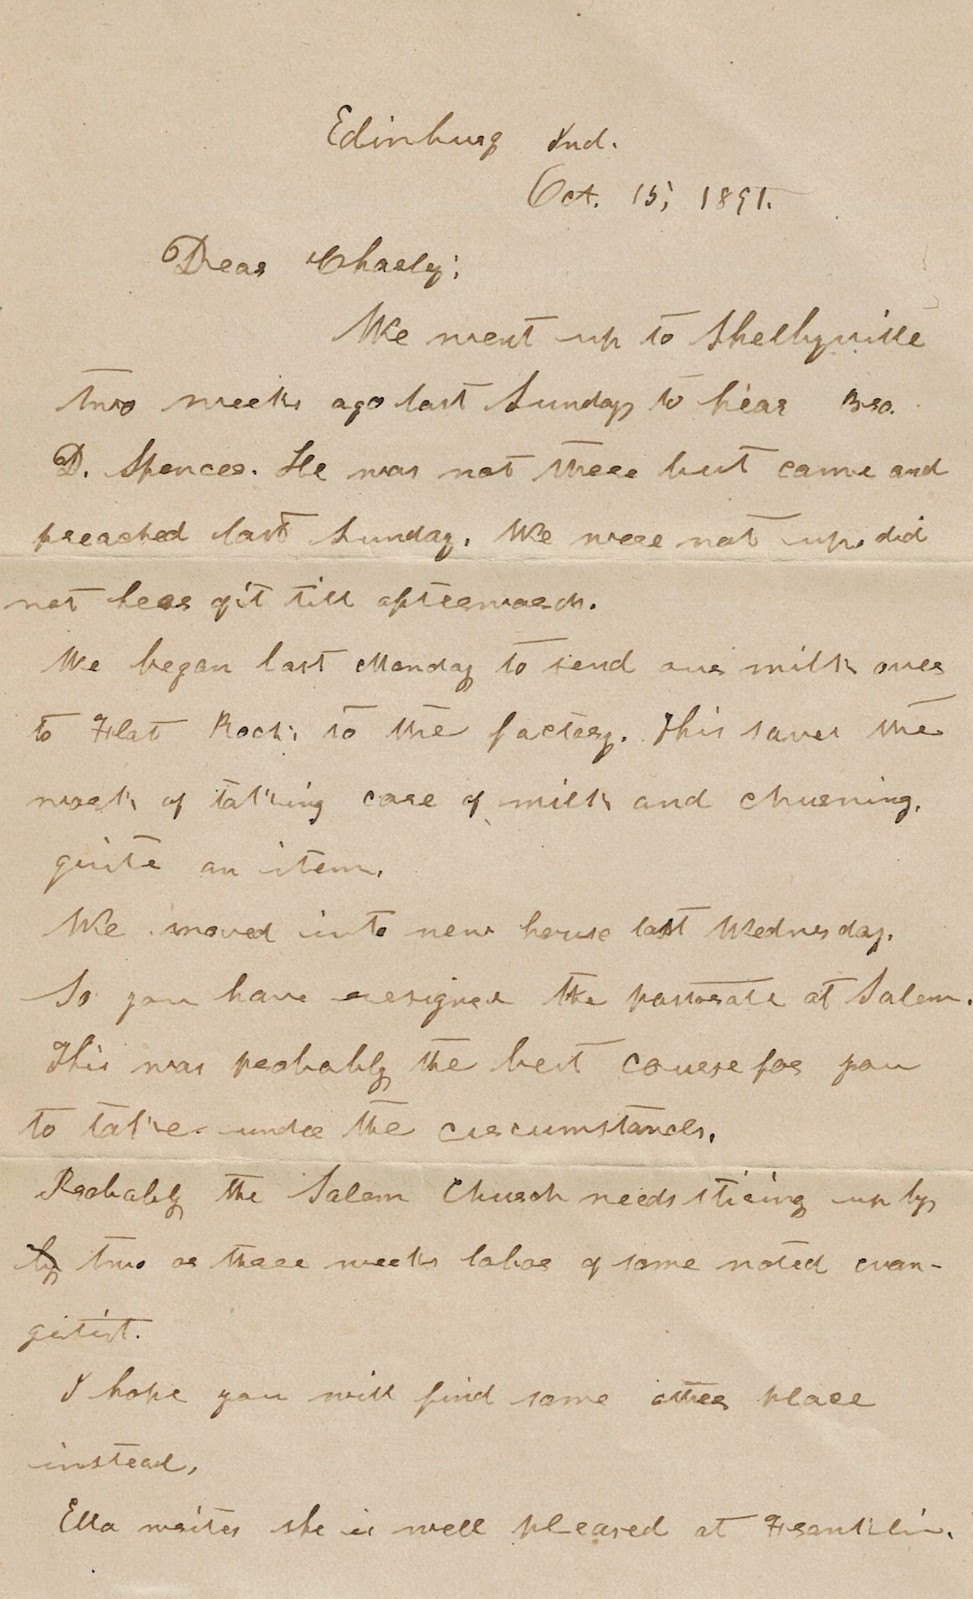 Edinburg Ind.
Oct. 15, 1891.
Dear Charly;
We went up to Shelbyville
two weeks ago last Sunday to hear Bro.
D. Spencer. He was not there but came and
preached last Sunday. We were not up, did
not hear of it till afterwards.
We began last Monday to send our milk over
to Flat Rock, to the factory. This saves the
work of taking care of milk and churning,
quite an item.
We moved into new house last Wednesday.
So you have resigned the pastorate at Salem.
This was probably the best course for you
to take under the circumstances.
Probably the Salem Church needs stiring up by
by two or three weeks labor of some noted evan-
gelist.
I hope you will find some other place
instead,
Ella writes she is well pleased at Franklin.